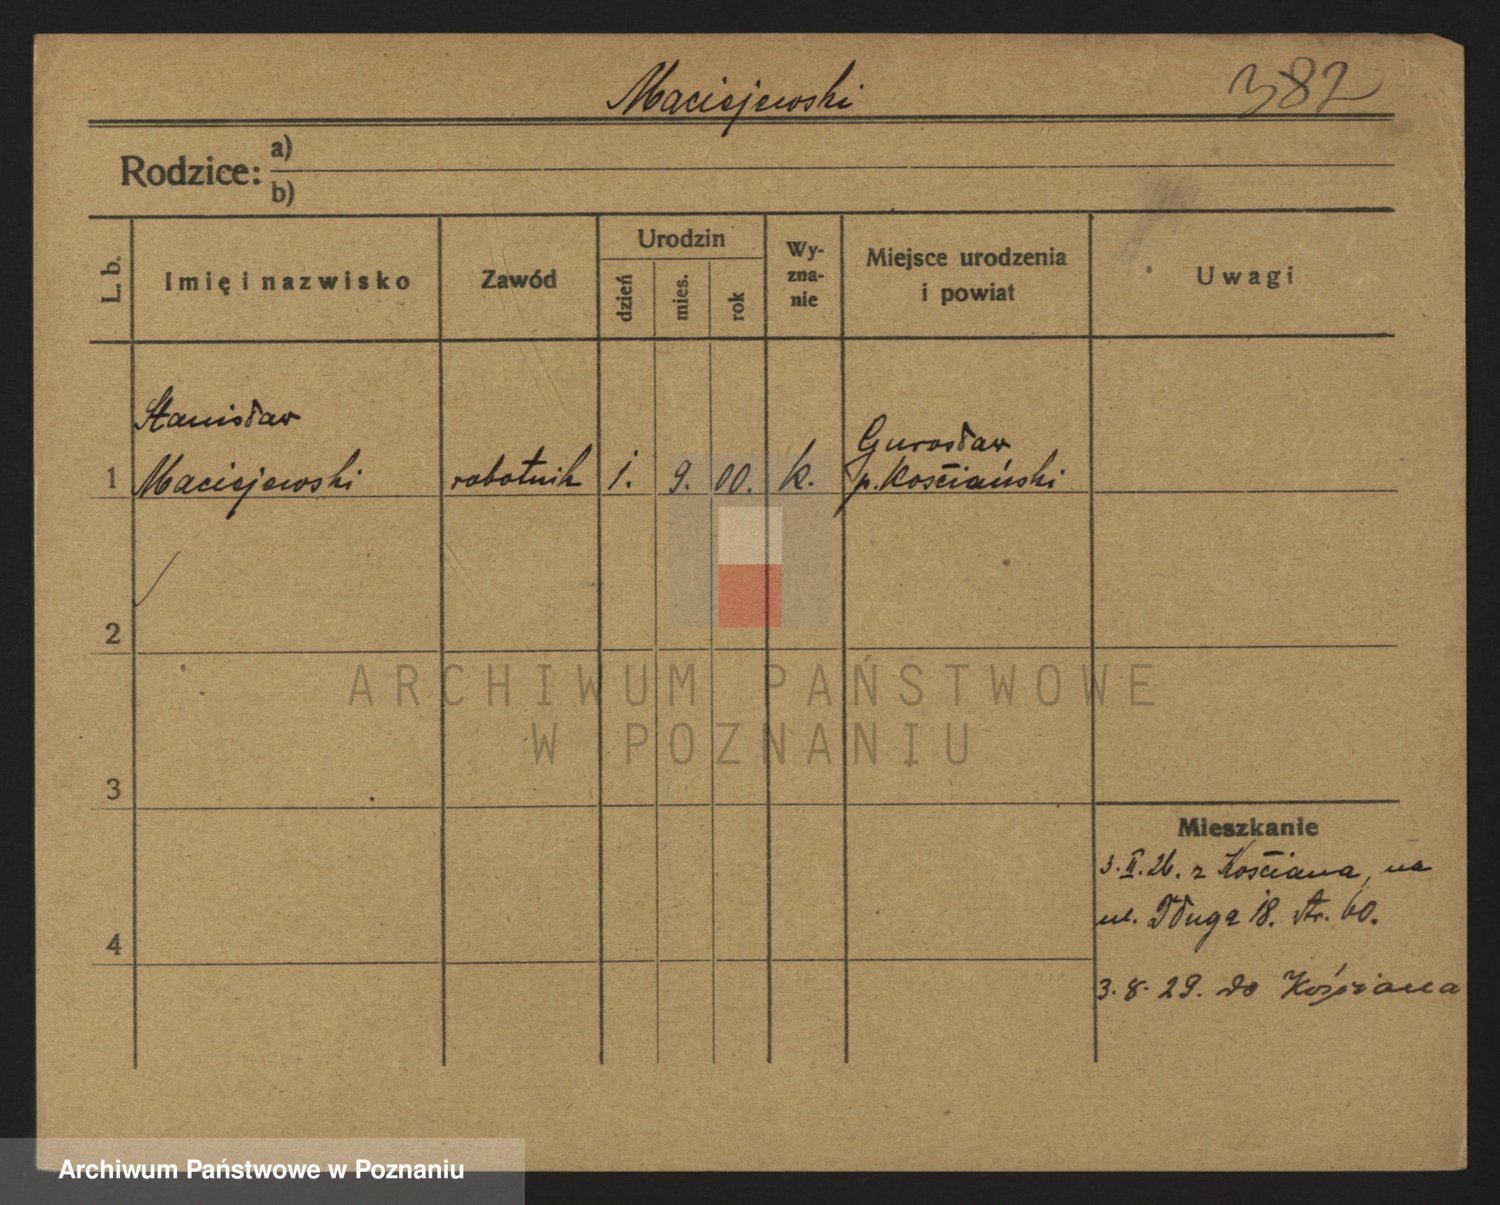 Maciejewski
382
Rodzice: a)
b)
L. b.
Imię i nazwisko
Zawód
Urodzin
dzień
mies.
rok
Wy-
zna-
nie
Miejsce urodzenia
i powiat
Uwagi
Stanisław
1 Maciejewski robotnik 1. 9. 00. k. Gurosław
p. Kościański
2
ARCHIWUM PAŃSTWOWE
W POZNANIU
3
Mieszkanie
3. II. 26. z Kościana, na
ul. Długą 18. Str. 60.
4
3. 8. 29. do Kościana
Archiwum Państwowe w Poznaniu